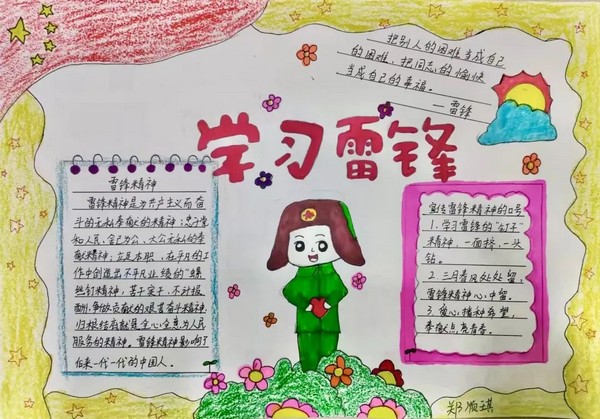 把别人的困难当成自己
的困难，把同志的愉快
当成自己的幸福。
—雷锋
学习雷锋
雷锋精神
雷锋精神是为共产主义而奋
斗的无私奉献的精神；忠于党
和人民、舍己为公、大公无私的奉
献精神；立足本职、在平凡的工
作中创造出不平凡业绩的"螺
丝钉精神；苦干实干、不计报
酬、争做贡献的艰苦奋斗精神.
归根结底就是全心全意为人民
服务的精神。雷锋精神影响了
后来一代一代的中国人。
宣传雷锋精神的口号
1.学习雷锋的"钉子"
精神，一面挤，一头
钻。
2.三月春风处处留，
雷锋精神心中留。
3.爱心播种希望，
奉献点亮青春。